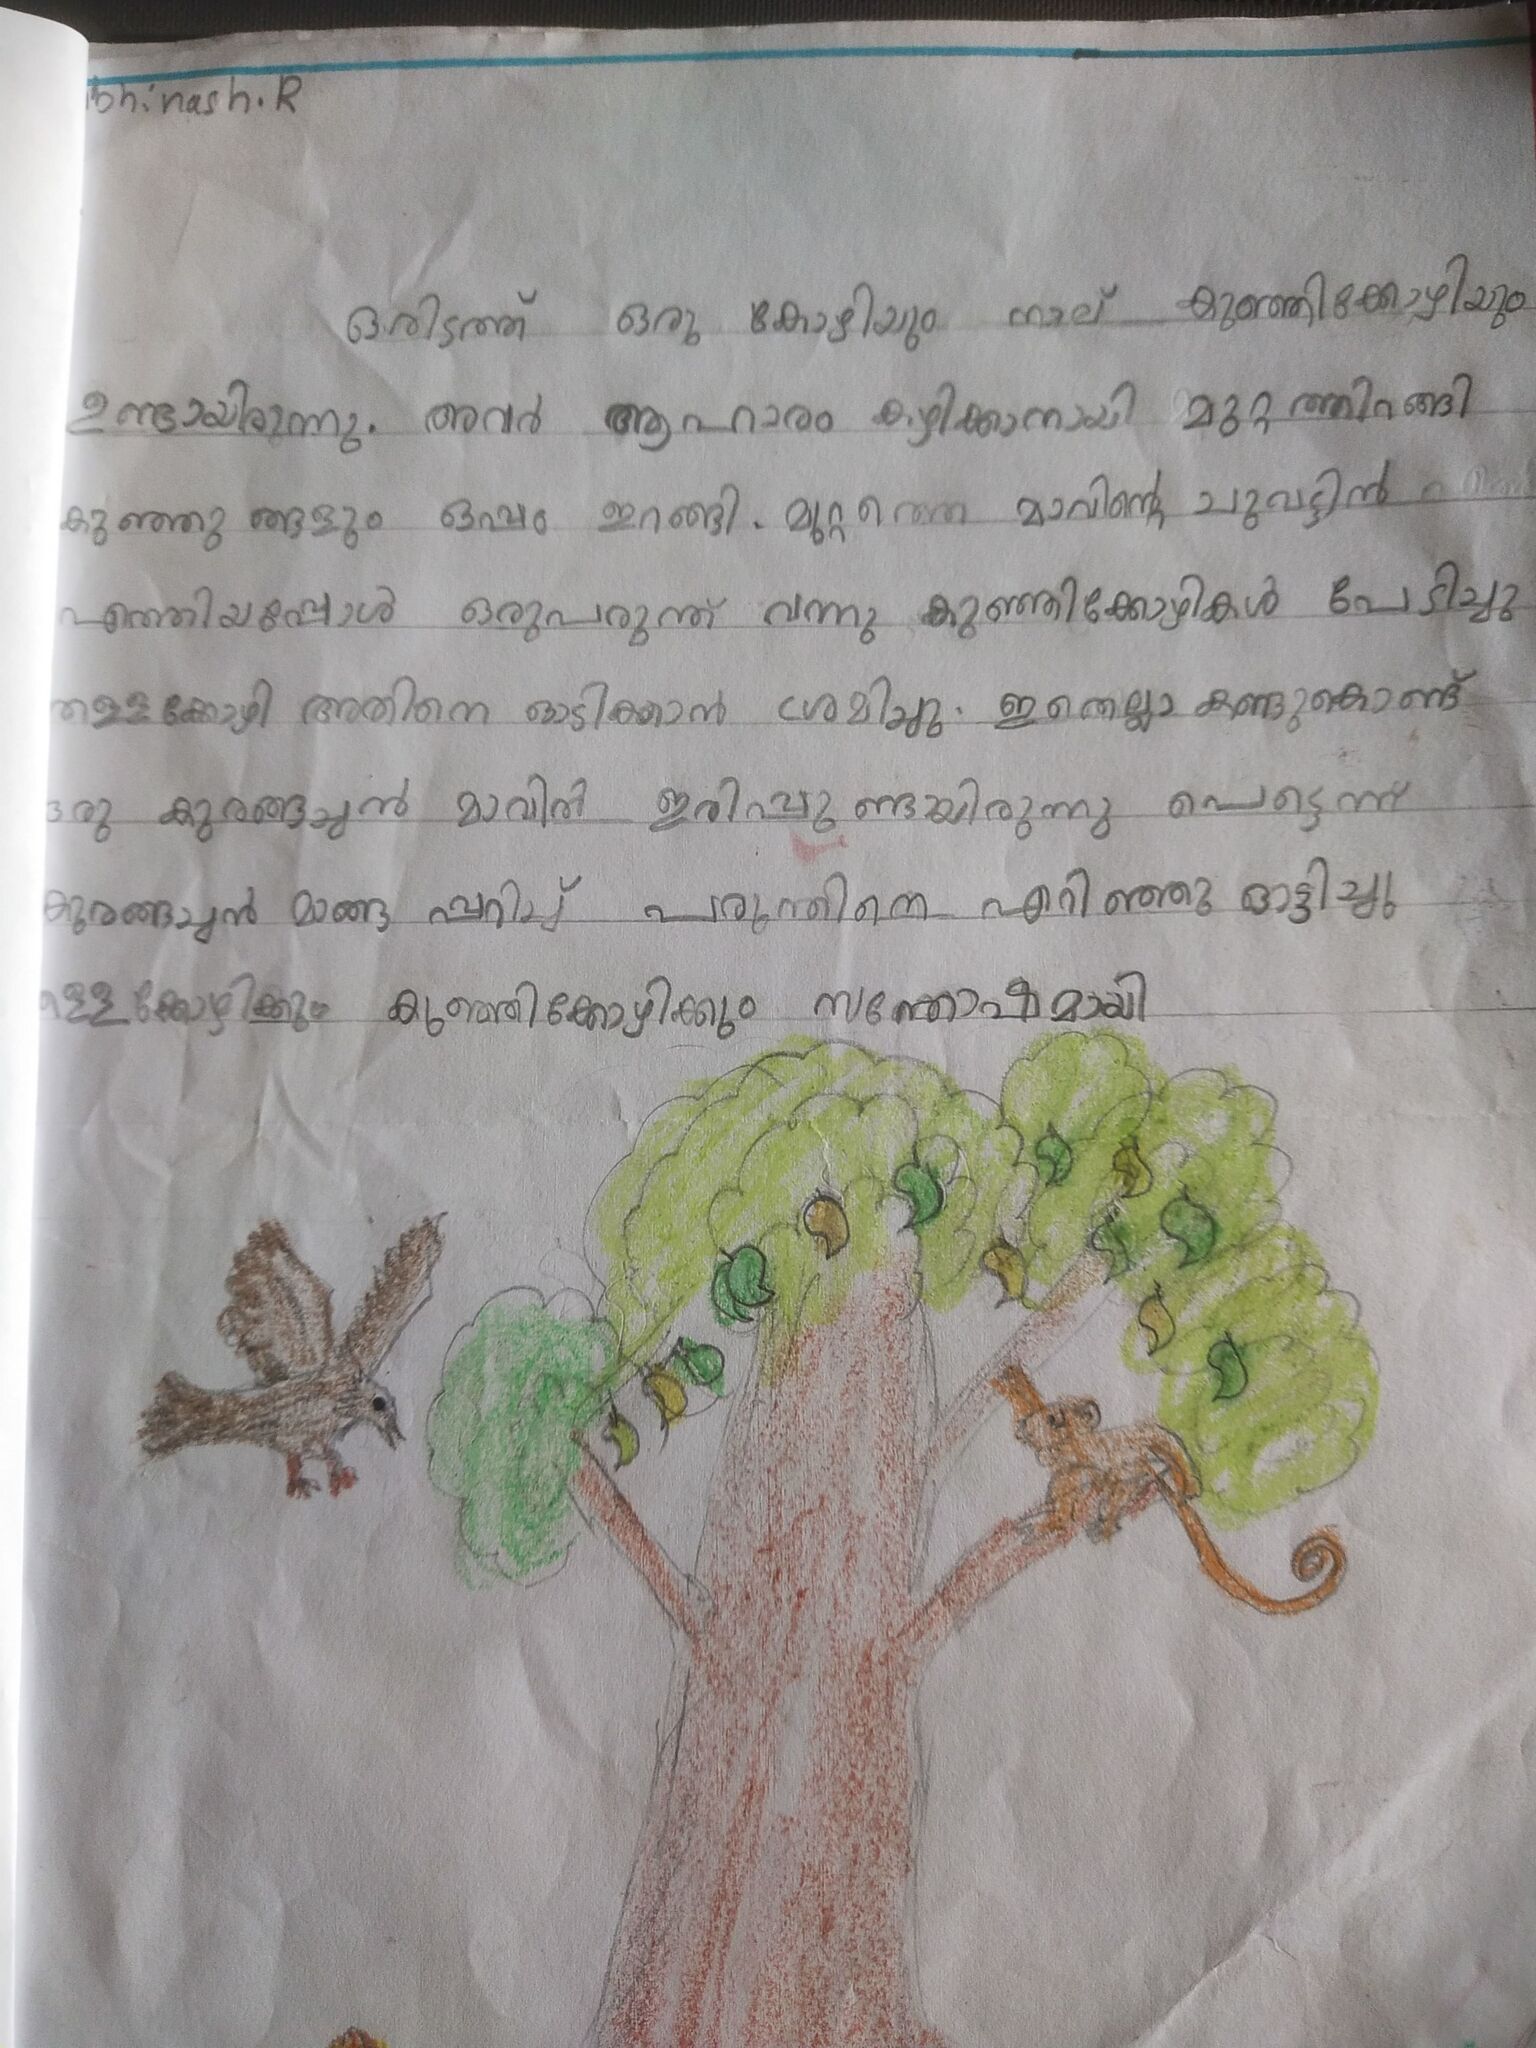 bhinash.R
ഒരിടത്ത് ഒരു കോഴിയും നാല് കുഞ്ഞിക്കോഴിയും
ഉണ്ടായിരുന്നു. അവർ ആഹാരം കഴിക്കാനായി മുറ്റത്തിറങ്ങി
കുഞ്ഞുങ്ങളും ഒപ്പം ഇറങ്ങി. മുറ്റത്തെ മാവിന്റെ ചുവട്ടിൻ
എത്തിയപ്പോൾ ഒരുപരുന്ത് വന്നു കുഞ്ഞിക്കോഴികൾ പേടിച്ചു
തള്ളക്കോഴി അതിനെ ഓടിക്കാൻ ശ്രമിച്ചു. ഇതെല്ലാ കണ്ടുകൊണ്ട്
ഒരു കുരങ്ങച്ചൻ മാവിൽ ഇരിപ്പുണ്ടയിരുന്നു പെട്ടെന്ന്
കുരങ്ങച്ചൻ മാങ്ങ പറിച്ച് പരുന്തിനെ എറിഞ്ഞു ഓട്ടിച്ചു
തള്ളക്കോഴിക്കും കുഞ്ഞിക്കോഴിക്കും സന്തോഷമായി